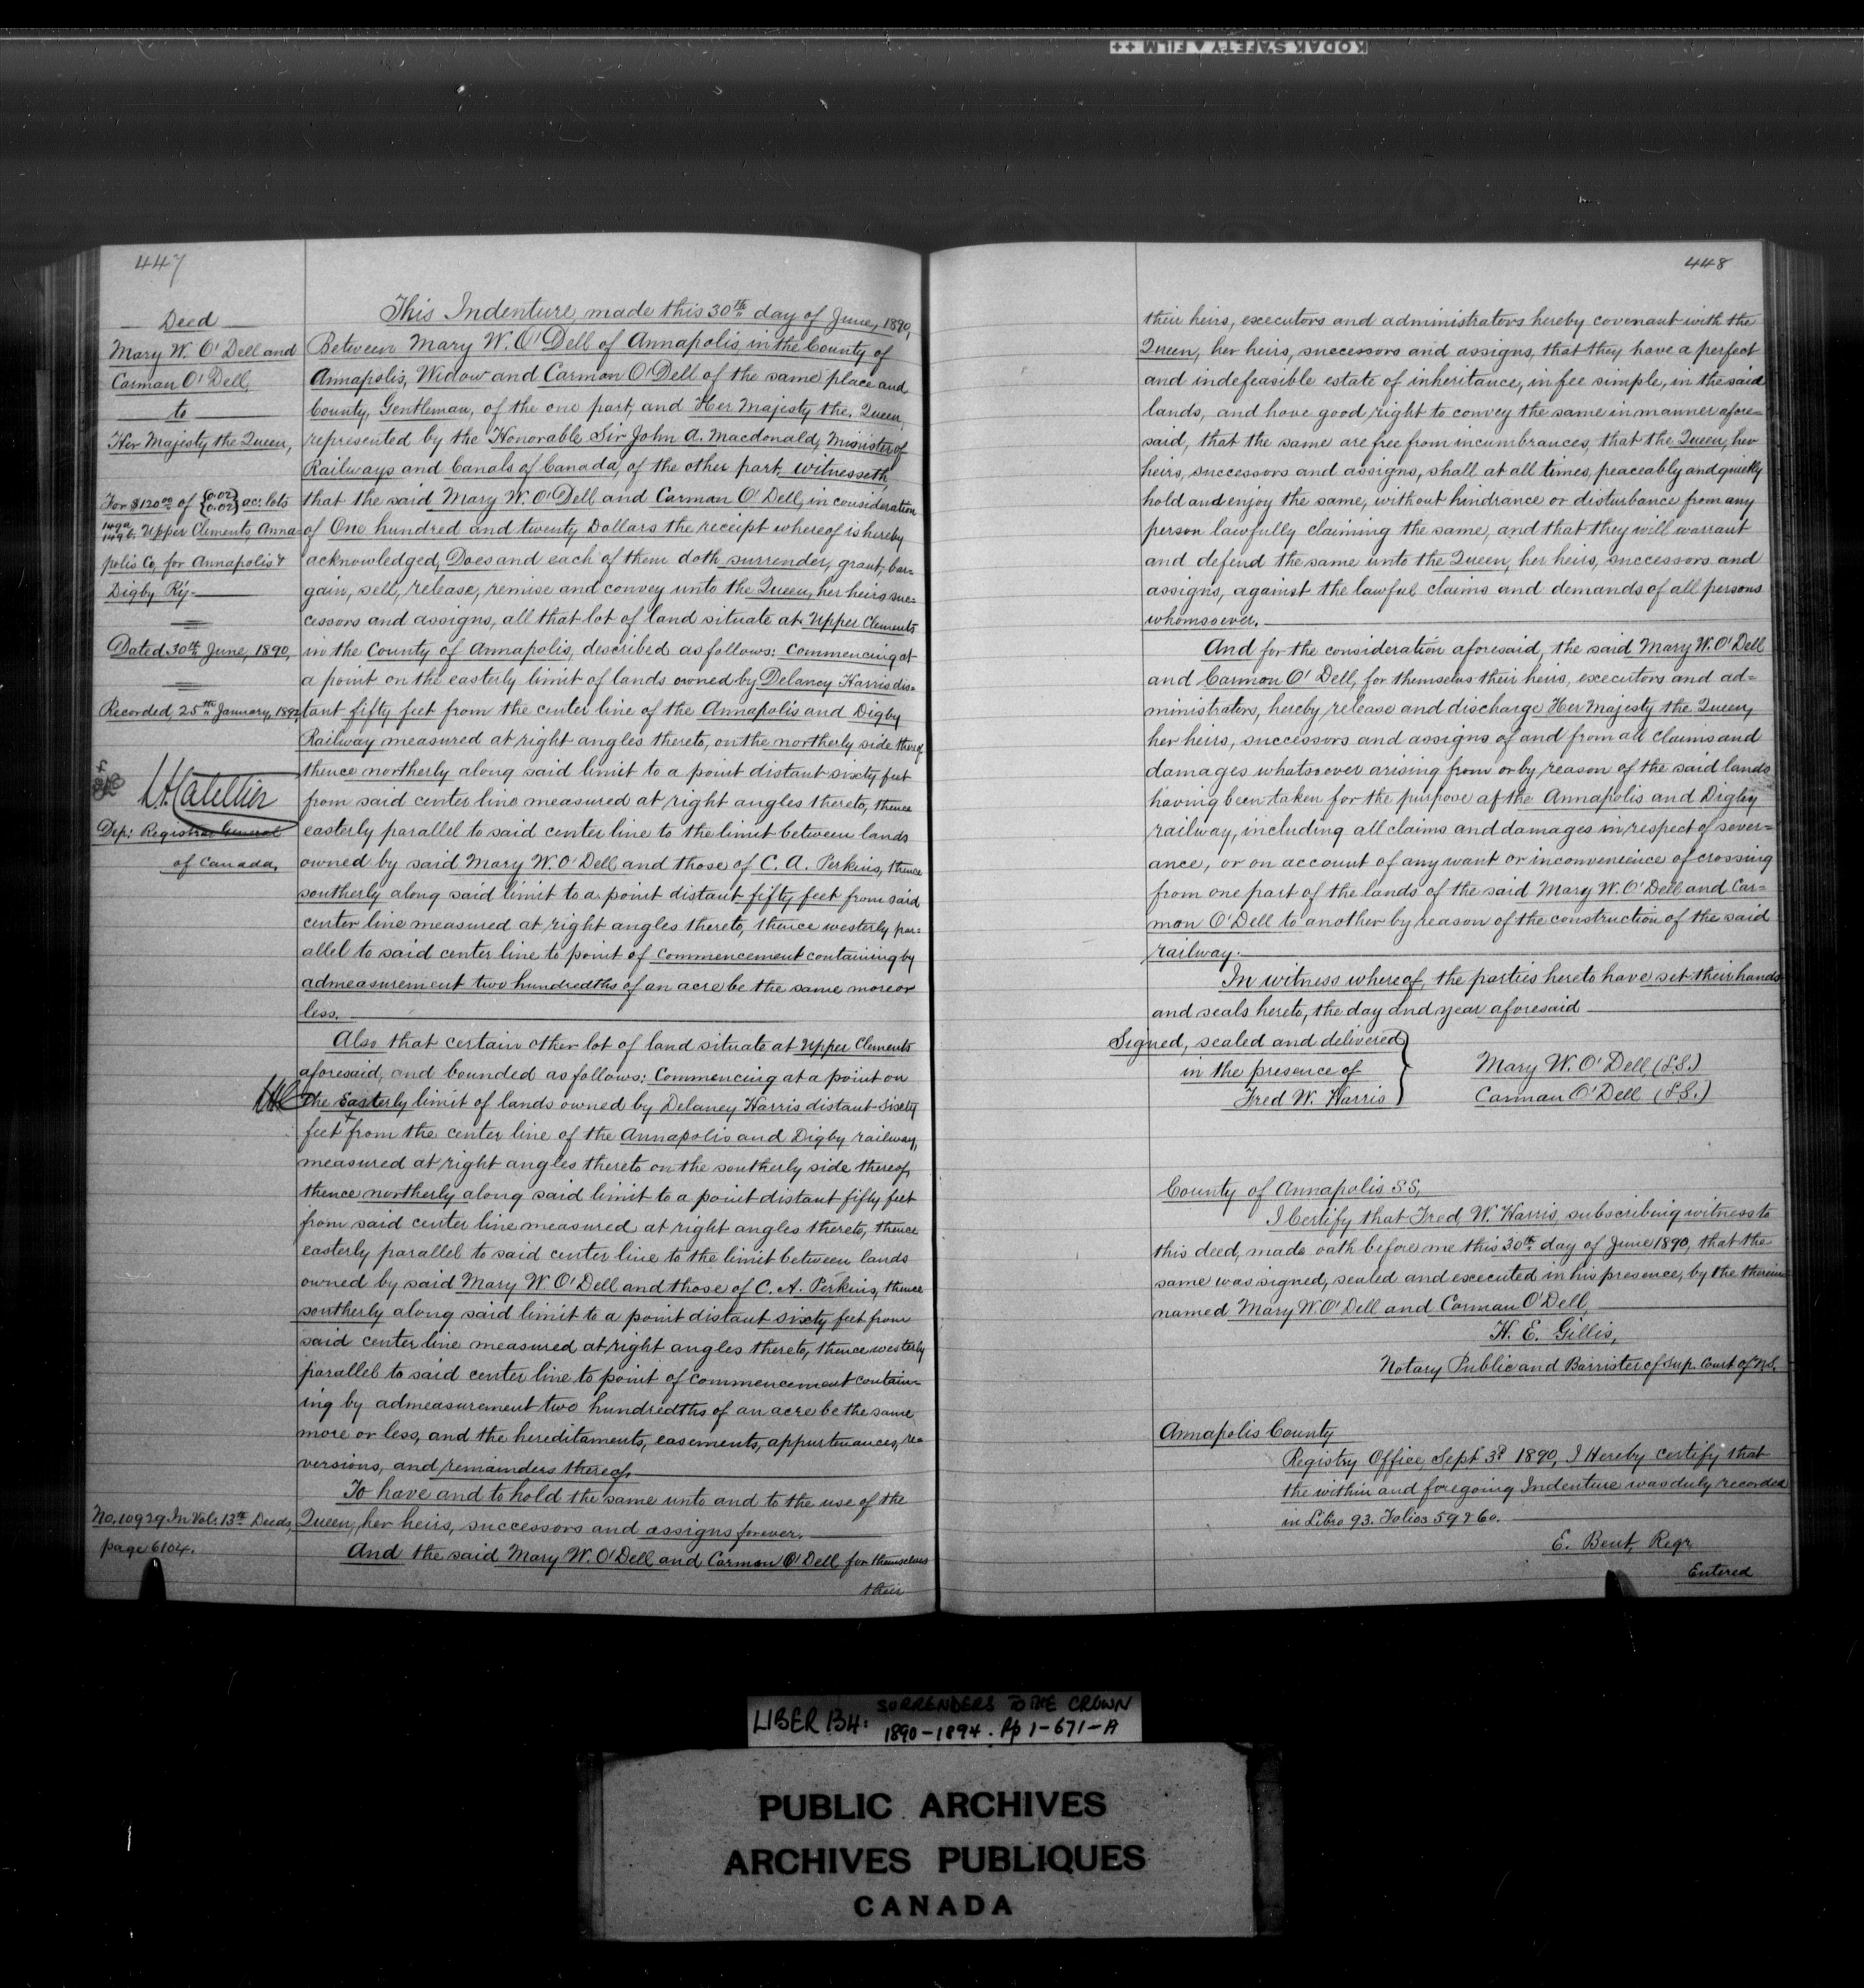 KODAK SAFETY FILM ++
447
Deed
Mary W. O'Dell and
Carman O'Dell,
to
Her Majesty the Queen,
For $120.00 of {0.02 0.02} ac: lots
149a 149b, Upper Clements Anna-
polis Co, for Annapolis &
Digby Ry.
Dated 30th June, 1890,
Recorded 25th January, 1892
L.A. Catellier
Dep: Registrar General
of Canada,
No. 10929 In Vol: 13th Deeds,
page 6104.
This Indenture made this 30th day of June, 1890,
Between Mary W. O'Dell of Annapolis, in the County of
Annapolis, Widow and Carman O'Dell of the same place and
County, Gentleman, of the one part, and Her Majesty the Queen,
represented by the Honorable Sir John A. Macdonald, Minister of
Railways and Canals of Canada, of the other part, witnesseth
that the said Mary W. O'Dell and Carman O'Dell, in consideration
of One hundred and twenty Dollars the receipt whereof is hereby
acknowledged, Does and each of them doth surrender, grant, bar=
gain, sell, release, remise and convey unto the Queen, her heirs suc=
cessors and assigns, all that lot of land situate at Upper Clements
in the County of Annapolis, described as follows: Commencing at
a point on the easterly limit of lands owned by Delancy Harris dis=
tant fifty feet from the center line of the Annapolis and Digby
Railway measured at right angles thereto, on the northerly side thereof
thence northerly along said limit to a point distant sixty feet
from said center line measured at right angles thereto, thence
easterly parallel to said center line to the limit between lands
owned by said Mary W. O'Dell and those of C. A. Perkins, thence
southerly along said limit to a point distant fifty feet from said
center line measured at right angles thereto, thence westerly par=
allel to said center line to point of commencement containing by
admeasurement two hundredths of an acre be the same more or
less.
Also that certain other lot of land situate at Upper Clements
aforesaid, and bounded as follows: Commencing at a point on
the Easterly limit of lands owned by Delaney Harris distant sixty
feet from the center line of the Annapolis and Digby railway,
measured at right angles thereto on the southerly side thereof,
thence northerly along said limit to a point distant fifty feet
from said center line measured at right angles thereto, thence
easterly parallel to said center line to the limit between lands
owned by said Mary W. O'Dell and those of C. A. Perkins, thence
southerly along said limit to a point distant sixty feet from
said center line measured at right angles thereto, thence westerly
parallel to said center line to point of commencement contain=
ing by admeasurement two hundredths of an acre be the same
more or less, and the hereditaments, easements, appurtenances, re=
versions, and remainders thereof.
To have and to hold the same unto and to the use of the
Queen, her heirs, successors and assigns forever.
And the said Mary W. O'Dell and Carman O'Dell for themselves
their
448
their heirs, executors and administrators hereby covenant with the
Queen, her heirs, successors and assigns, that they have a perfect
and indefeasible estate of inheritance, in fee simple, in the said
lands, and have good right to convey the same in manner afore=
said, that the same are free from incumbrances, that the Queen, her
heirs, successors and assigns, shall at all times, peaceably and quietly
hold and enjoy the same, without hindrance or disturbance from any
person lawfully claiming the same, and that they will warrant
and defend the same unto the Queen, her heirs, successors and
assigns, against the lawful claims and demands of all persons
whomsoever.
And for the consideration aforesaid, the said Mary W. O'Dell
and Carman O'Dell, for themselves their heirs, executors and ad=
ministrators, hereby release and discharge Her Majesty the Queen,
her heirs, successors and assigns of and from all claims and
damages whatsoever arising from or by reason of the said lands
having been taken for the purpose of the Annapolis and Digby
railway, including all claims and damages in respect of sever=
ance, or on account of any want or inconvenience of crossing
from one part of the lands of the said Mary W. O'Dell and Car=
man O'Dell to another by reason of the construction of the said
railway.
In witness whereof, the parties hereto have set their hands
and seals hereto, the day and year aforesaid
Signed, sealed and delivered
in the presence of
Fred W. Harris
Mary W. O'Dell (L.S.)
Carman O'Dell (L.S.)
County of Annapolis SS,
I Certify that Fred W. Harris, subscribing witness to
this deed, made oath before me this 30th day of June 1890, that the
same was signed, sealed and executed in his presence, by the therein
named Mary W O'Dell and Carman O'Dell,
H. E. Gillis,
Notary Public and Barrister of Sup. Court of N.S.
Annapolis County
Registry Office, Sept 3d 1890, I Hereby certify that
the within and foregoing Indenture was duly recorded
in Libro 93. Folios 59 & 60.
E. Bent, Regr
Entered
LIBER 134: SURRENDERS TO THE CROWN
1890-1894. Pp 1-671-A
PUBLIC ARCHIVES
ARCHIVES PUBLIQUES
CANADA